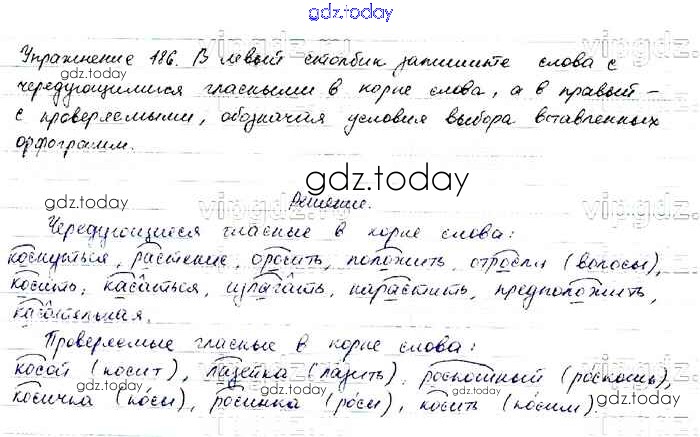 gdz.today
Упражнение 186. В левый столбик запишите слова с
gdz.today
чередующимися гласными в корне слова, а в правый –
с проверяемыми, обозначая условия выбора вставленных
орфограмм.
gdz.today
Решение.
Чередующиеся гласные в корне слова:
коснуться, растение, оросить, положить, отросли (волосы),
косить, касаться, излагать, нарастить, предположить,
касательная.
Проверяемые гласные в корне слова:
косой (косит), лазейка (лазить), роскошный (роскошь),
косичка (ко́сы), росинка (ро́сы), косить (ко́сим).
gdz.today